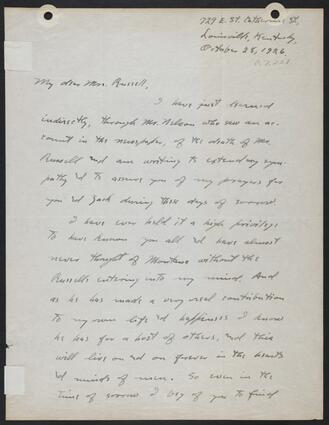 729 E. St. Catherine St.,
Louisville, Kentucky,
October 28, 1926.
My dear Mrs. Russell,
I have just learned
indirectly, through Mr. Nelson who saw an ac-
count in the newspaper, of the death of Mr.
Russell and am writing to extend my sym-
pathy 'd to assure you of my prayers for
you 'd Jack during these days of sorrow.
I have ever held it a high privilege
to have known you all 'd have almost
never thought of Montana without the
Russells entering into my mind. And
as he has made a very real contribution
to my own life 'd happiness I know
he has for a host of others, 'nd this
will live on 'nd on forever in the hearts
'd minds of men. So even in the
time of sorrow I beg of you to find